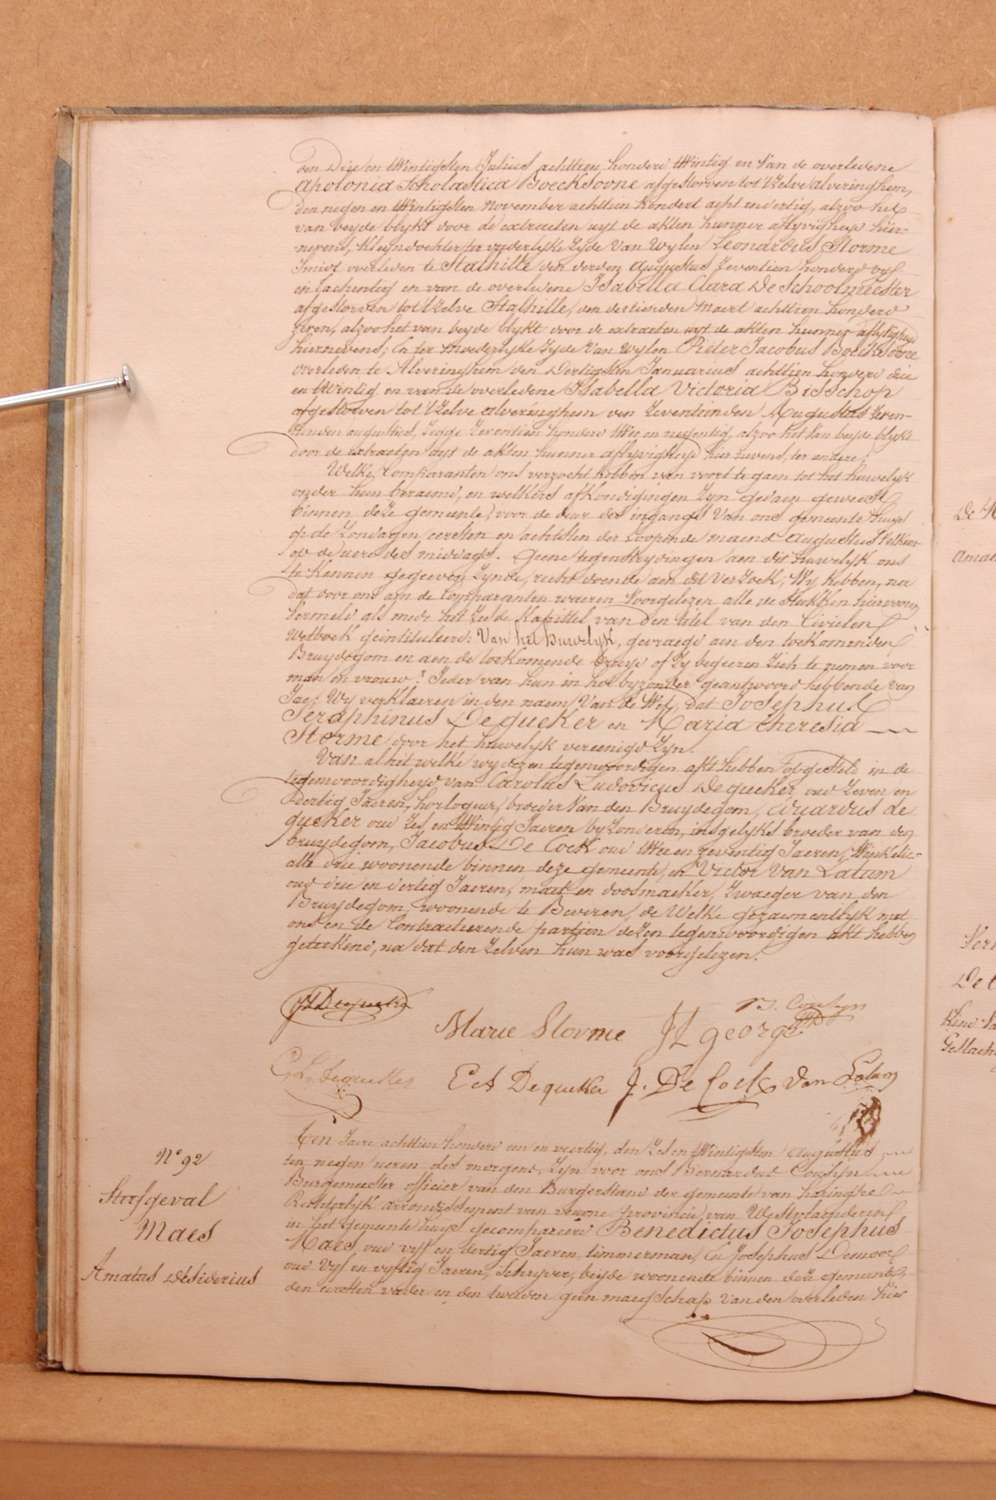 den drie en twintigsten Julius achttien honderd twintig en van de overledene
Apolonia Scholastica Boecksoone afgestorven tot 't zelve Alveringhem,
den negen en twintigsten November achttien hondert acht en dertig, alzoo het
van beyde blykt door de extracten uyt de akten hunner aflyvigheyd hier-
nevens, kleyndochter ter vaderlyke zyde van wylen Leonardus Storme
Smidt overleden te Stalhille den eersten Augustus zeventien honderd vyf
en tachentig en van de overledene Isabella Clara De Schoolmeester
afgestorven tot 't zelve Stalhille, den dertienden Maert achttien honderd
zeven, alzoo het van beyde blykt door de extracten uyt de akten hunner aflyvigheyd
hiernevens; En ter moederlyke zyde van wylen Pieter Jacobus Boecksoone
overleden te Alveringhem den dertigsten Januarius achttien honderd drie
en twintig en van de overledene Isabella Victoria Bisschop
afgestorven tot 't zelve Alveringhem den zeventienden Augustus zeven-
tienden augustus, zegge zeventien honderd twee en negentig, alzoo het van beyde blykt
door de extracten uyt de akten hunner aflyvigheyd hiernevens, ter andere;
Welke Comparanten ons verzocht hebben van voort te gaen tot het huwelyk
onder hun beraemd, en welkers afkondigingen zyn gedaen geweest
binnen deze gemeente, voor de deur des ingangs van ons gemeente huys
op de zondagen eersten en achtsten der loopende maend Augustus telkens
om de ure des middags. Geene tegenstryvingen aen dit huwelyk ons
te kennen gegeeven zynde, recht doende aen dit verzoek; Wy hebben, na
dat door ons aen de Comparanten waeren voorgelezen alle de stukken hiervooren
vermeld als mede het zesde kapittel van den titel van den Civielen
Wetboek geintituleerd: Van het huwelyk, gevraegd aen den toekomenden
Bruydegom en aen de toekomende bruyd of zy begeeren zich te nemen voor
man en vrouw? Jeder van hun in het byzonder geantwoord hebbende van
Jae; Wy verklaeren in den naem van de Wet, dat Josephus
Seraphinus Dequeker en Maria Theresia
Storme door het huwelyk vereenigd zyn.
Van al het welke wy dezen tegenwoordigen akt hebben opgesteld in de
tegenwoordigheyd van Carolus Ludovicus Dequeker, oud zeven en
dertig Jaeren, horlogeur, broeder van den Bruydegom, Eduardus de
queker oud zes en twintig Jaeren byzonderen, insgelyks broeder van den
bruydegom, Jacobus De Cock oud twee en zeventig Jaeren, Winkelier
alle drie woonende binnen deze gemeente, en Victor Van Latum
oud drie en dertig Jaeren, maet en doosmaeker, zwaeger van den
Bruydegom, woonende te Beveren, de welke gezaementlyk met
ons en de Contracterende partyen dezen tegenwoordigen akt hebben
geteekend, na dat den zelven hun was voorgelezen.
JS Dequeker
B. Cozyn
Marie Storme JL george
C. L. Dequeker Ed Dequeker J. De Cock Van Latum
Een Jaere achttien honderd een en veertig, den zes en twintigsten Augustus
ten negen uren des morgens, zyn voor ons Bernardus Cozyn
Burgemeester officier van den Burgerstand der gemeente van
Rechterlyk arrondissement van veurne provincie van Westvlaenderen
in het gemeente huys gecompareerd Benedictus Josephus
Maes, oud vyf en dertig Jaeren, timmerman, En Josephus
oud vyf en vyftig Jaeren, Schryver, beyde woonende binnen deze gemeente,
den eersten vader en den tweeden geen maegschap van den overleden hier
N° 92
Sterfgeval
Maes
Amatus Desiderius
De
Amat
De C
Kind
Geslach